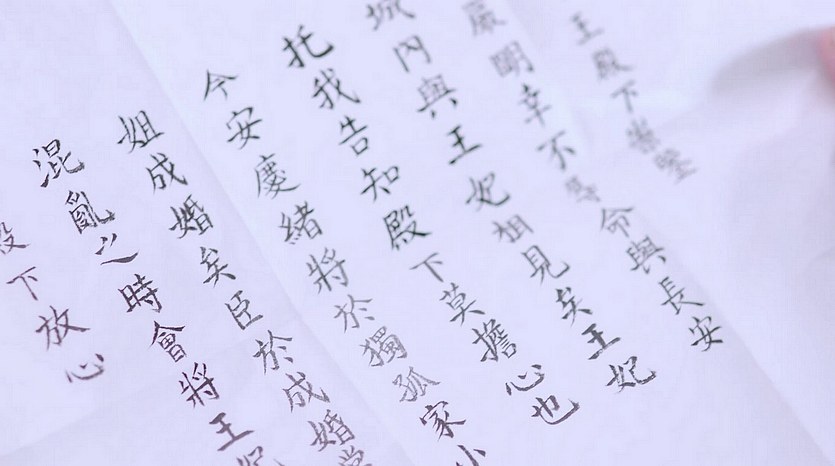 王殿下崇鑒
嚴明幸不辱命與長安
城內與王妃相見矣王妃
托我告知殿下莫擔心也
今安慶緒將於獨孤家小
姐成婚矣臣於成婚當
混亂之時會將王妃
殿下放心